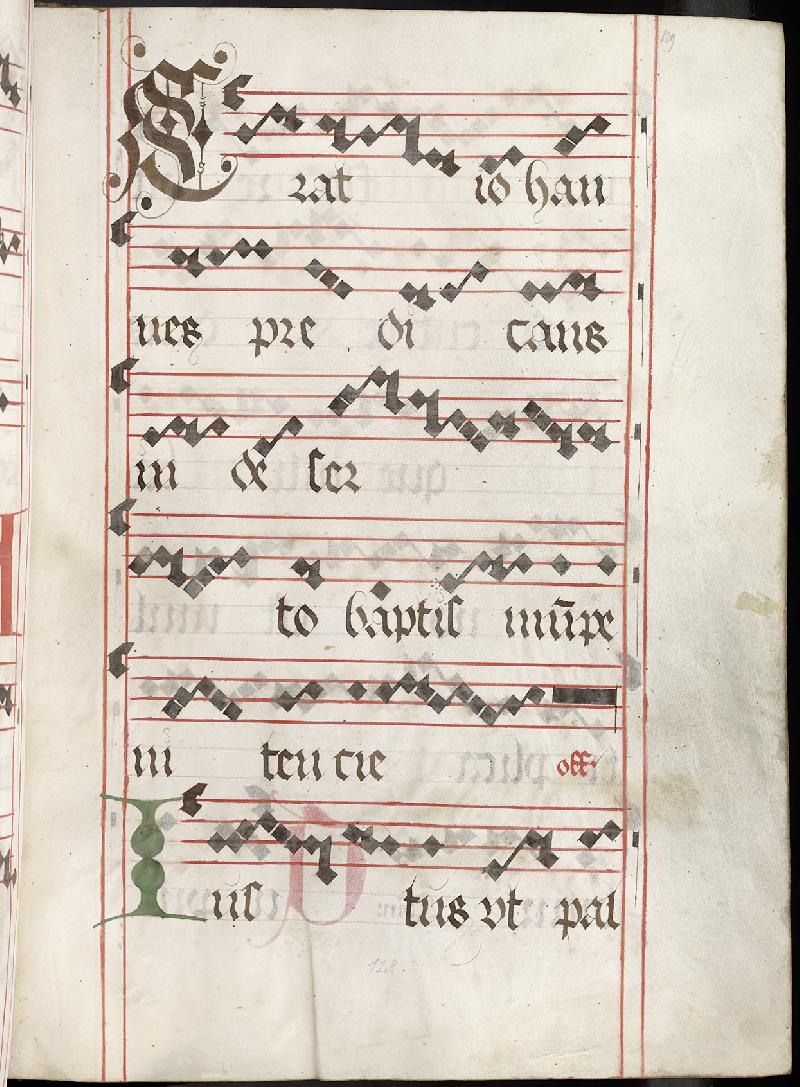 129
Erat iohan
nes pre di cans
in de ser
to baptis mūpe
ni ten cie off:
Ius tus vt pal
128